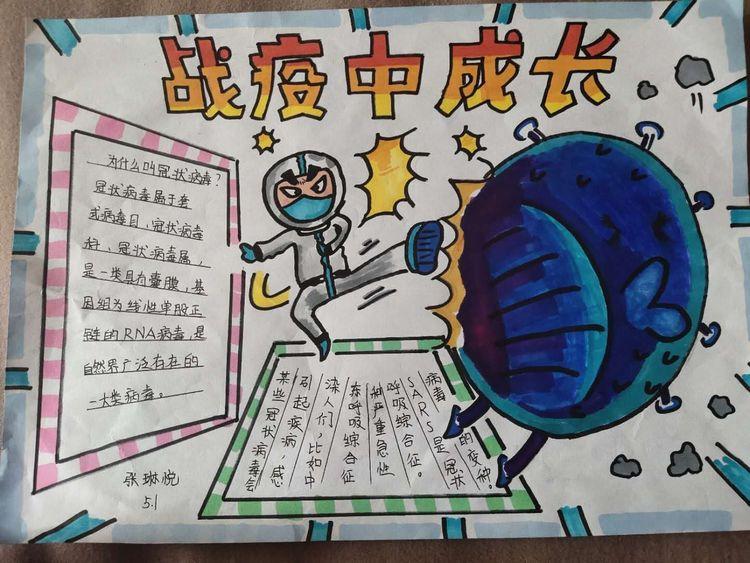 战疫中成长
为什么叫冠状病毒?
冠状病毒属于套
式病毒目、冠状病毒
科、冠状病毒属,
是一类具有囊膜、基
因组为线性单股正
链的RNA病毒,是
自然界广泛存在的
一大类病毒。
某些冠状病毒会
引起疾病,感
染人们,比如中
东呼吸综合征
和严重急性
呼吸综合征。
SARS是冠状
病毒的变种。
张琳悦
5.1